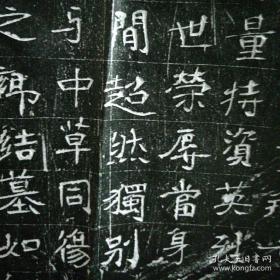 量特資英
世榮辱當身
間超然獨别
与中草同傷
之歸結墓如
孔夫子旧书网